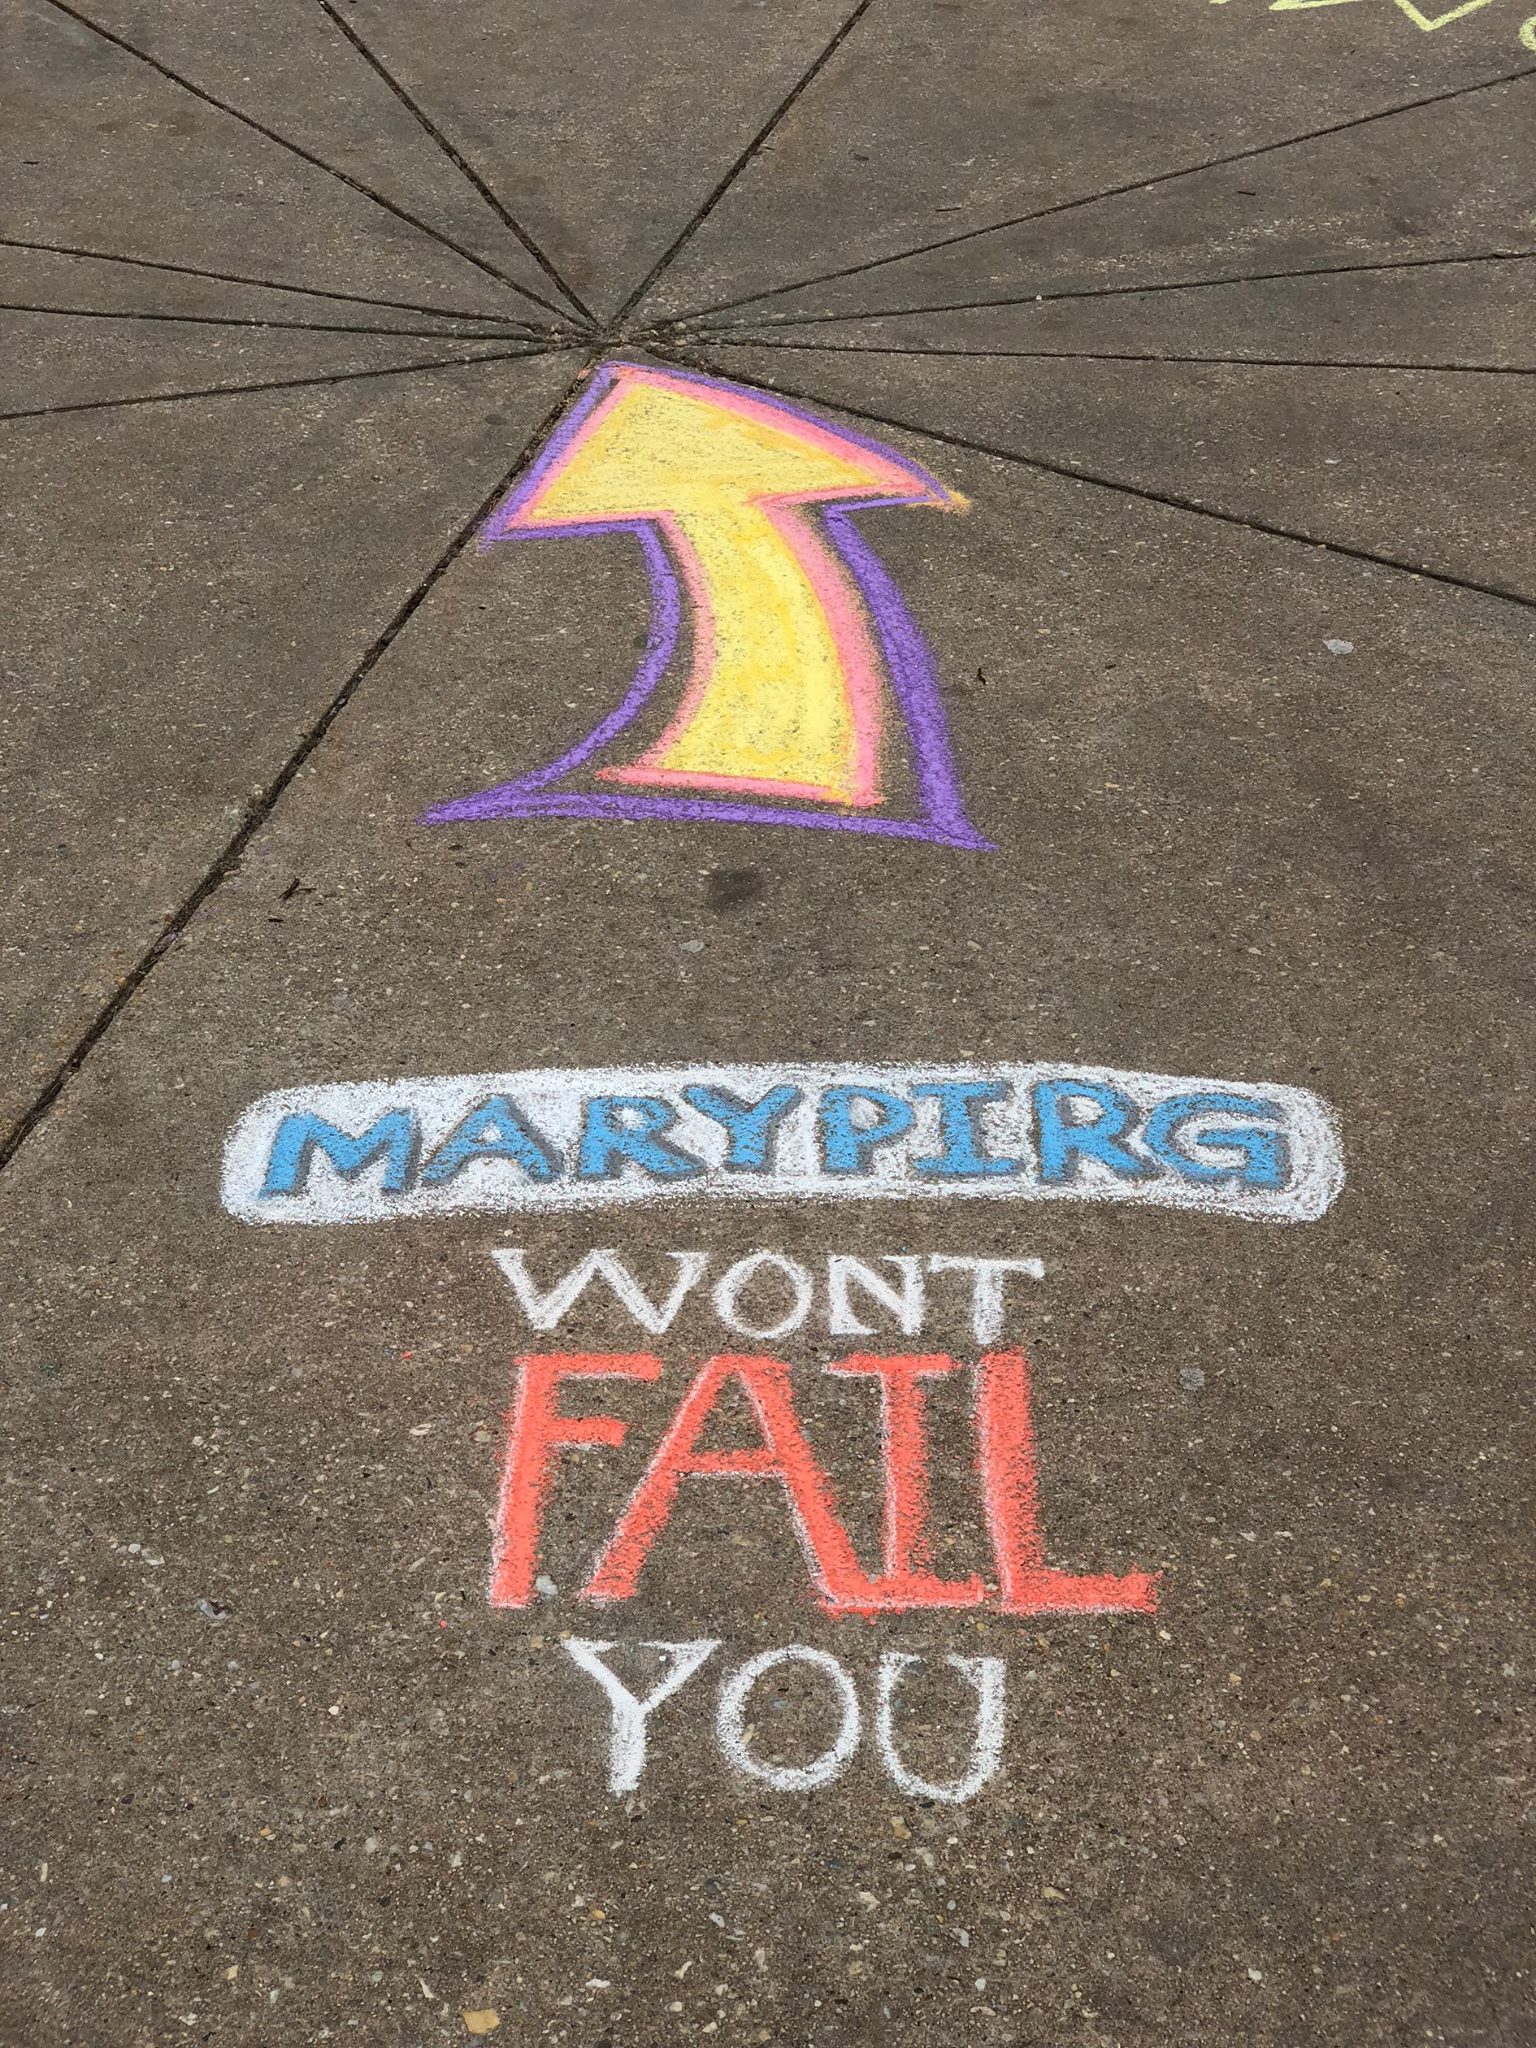 MARYPIRG
WONT
FAIL
YOU